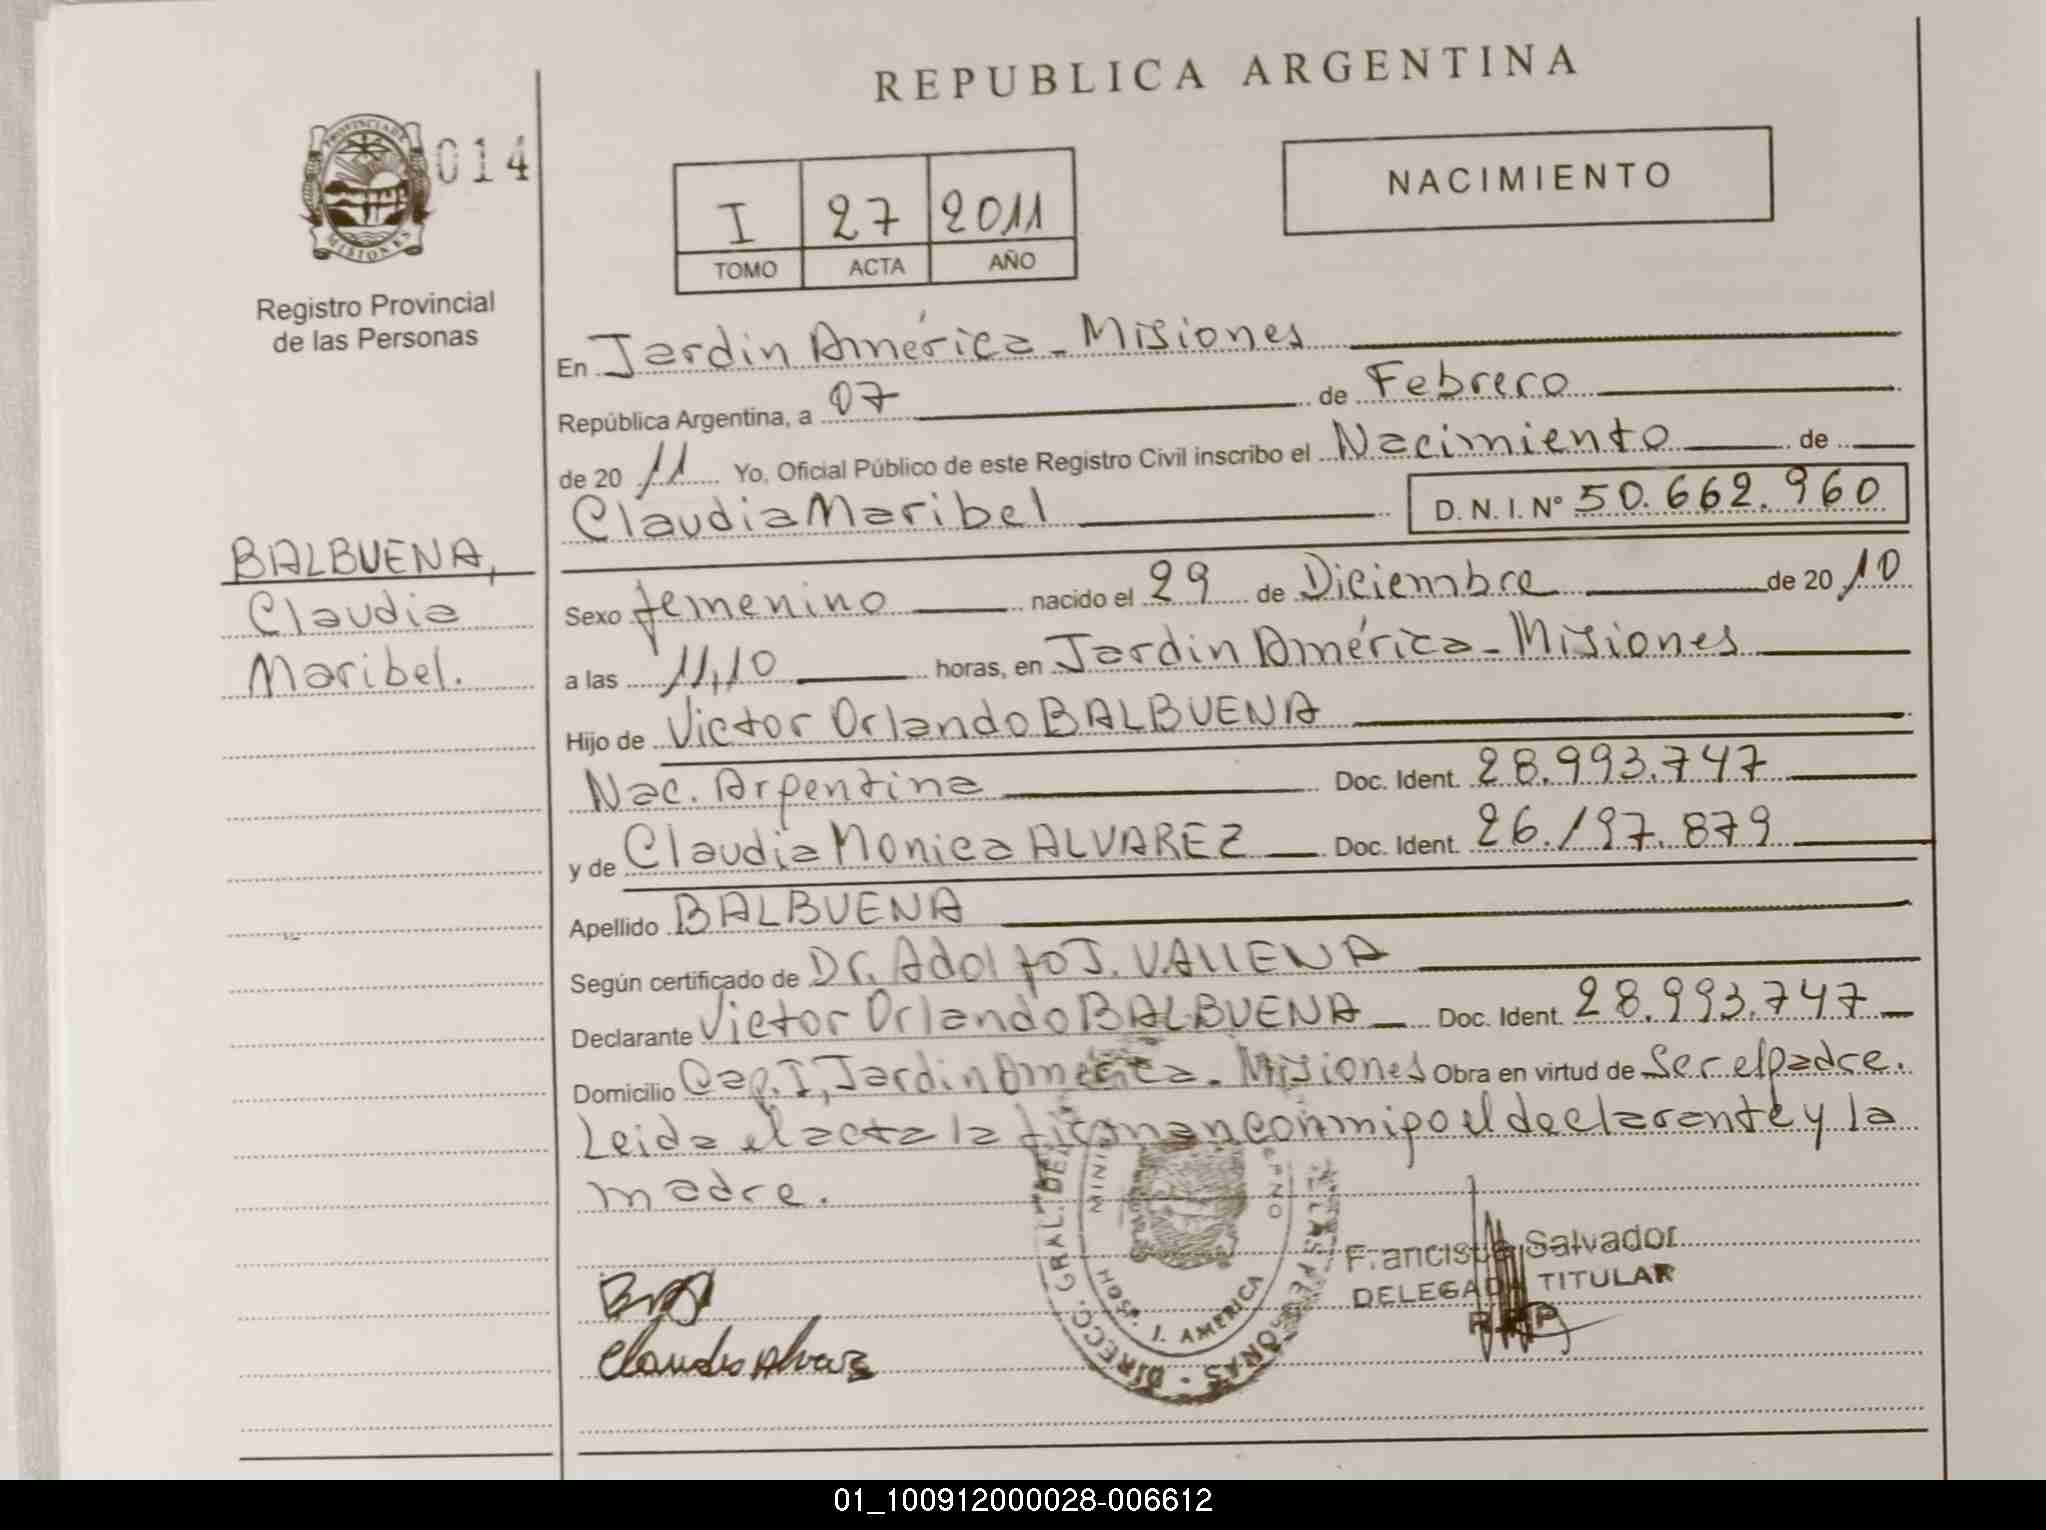 REPUBLICA ARGENTINA
PROVINCIA DE
MISIONES
014
NACIMIENTO
I 27 2011
TOMO ACTA AÑO
Registro Provincial
de las Personas
En Jardin América - Misiones
República Argentina, a 07 de Febrero
de 2011 Yo, Oficial Público de este Registro Civil inscribo el Nacimiento de
Claudia Maribel D.N.I. Nº 50.662.960
BALBUENA,
Claudia
Maribel.
Sexo femenino nacido el 29 de Diciembre de 2010
a las 11,10 horas, en Jardin América - Misiones
Hijo de Victor Orlando BALBUENA
Nac. Argentina Doc. Ident. 28.993.747
y de Claudia Monica ALVAREZ Doc. Ident. 26.197.879
Apellido BALBUENA
Según certificado de Dr. Adolfo J.
Declarante Victor Orlando BALBUENA Doc. Ident. 28.993.747
Domicilio Cap. I, Jardin América - Misiones Obra en virtud de Ser el padre.
Leida el acta la firman conmigo el declarante y la
madre.
Salvador
DELEGADO TITULAR
DIRECC. GRAL. DE
J. AMERICA
01_100912000028-006612